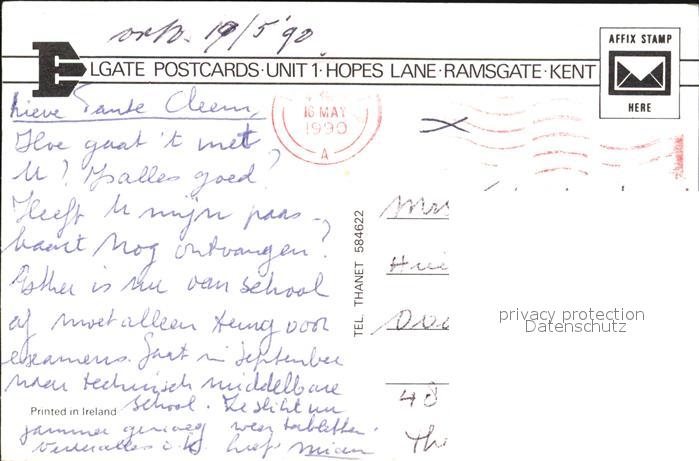 ontv. 19/5 '90
AFFIX STAMP
HERE
ELGATE POSTCARDS·UNIT 1·HOPES LANE·RAMSGATE·KENT
16 MAY
1990
A
Lieve Tante Cleem,
Hoe gaat 't met
U? Is alles goed?
Heeft U mijn paas-
kaart nog ontvangen?
Esther is nu van school
af moet alleen terug voor
examens. Gaat in September
naar technisch middelbare
school. Ze slikt nu
jammer genoeg weer tabletten.
Verder alles o.k. liefs Miriam
TEL. THANET 584622
Printed in Ireland
Mr
48
Th
privacy protection
Datenschutz